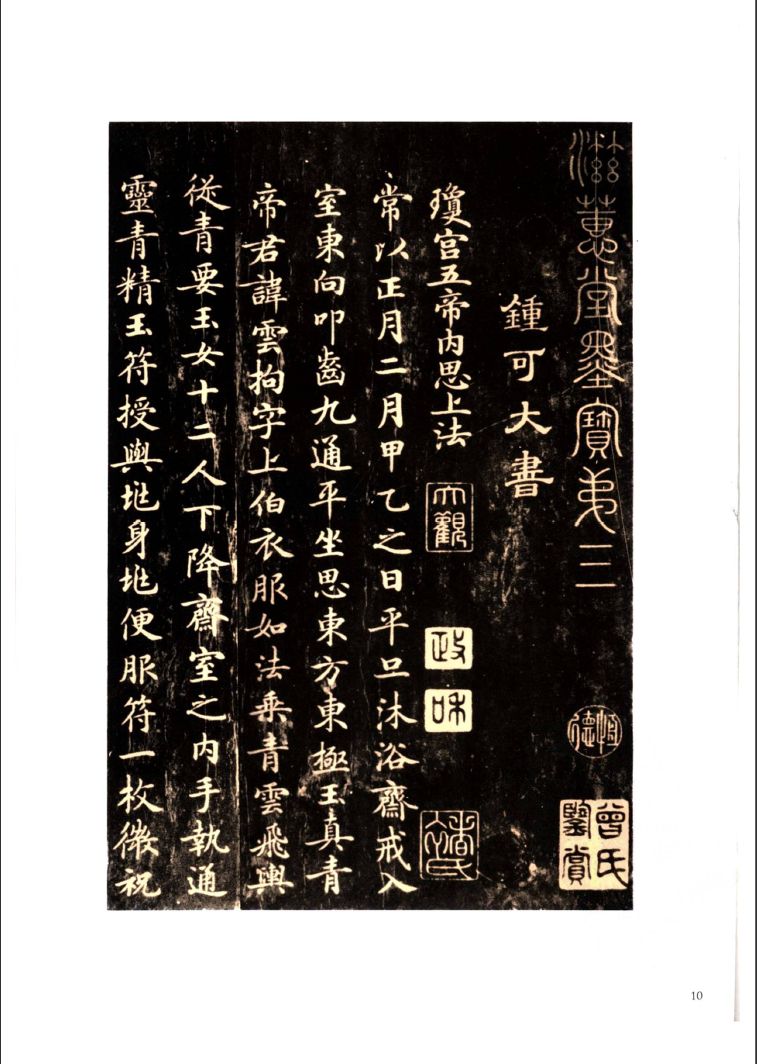 滋蕙堂墨寶弟三
鍾可大書
瓊宮五帝內思上法
常以正月二月甲乙之日平旦沐浴齋戒入
室東向叩齒九通平坐思東方東極玉真青
帝君諱雲拘字上伯衣服如法乘青雲飛輿
從青要玉女十二人下降齋室之內手執通
靈青精玉符授與兆身兆便服符一枚微祝
大觀
政
和
恒德
曾氏
鑒賞
10